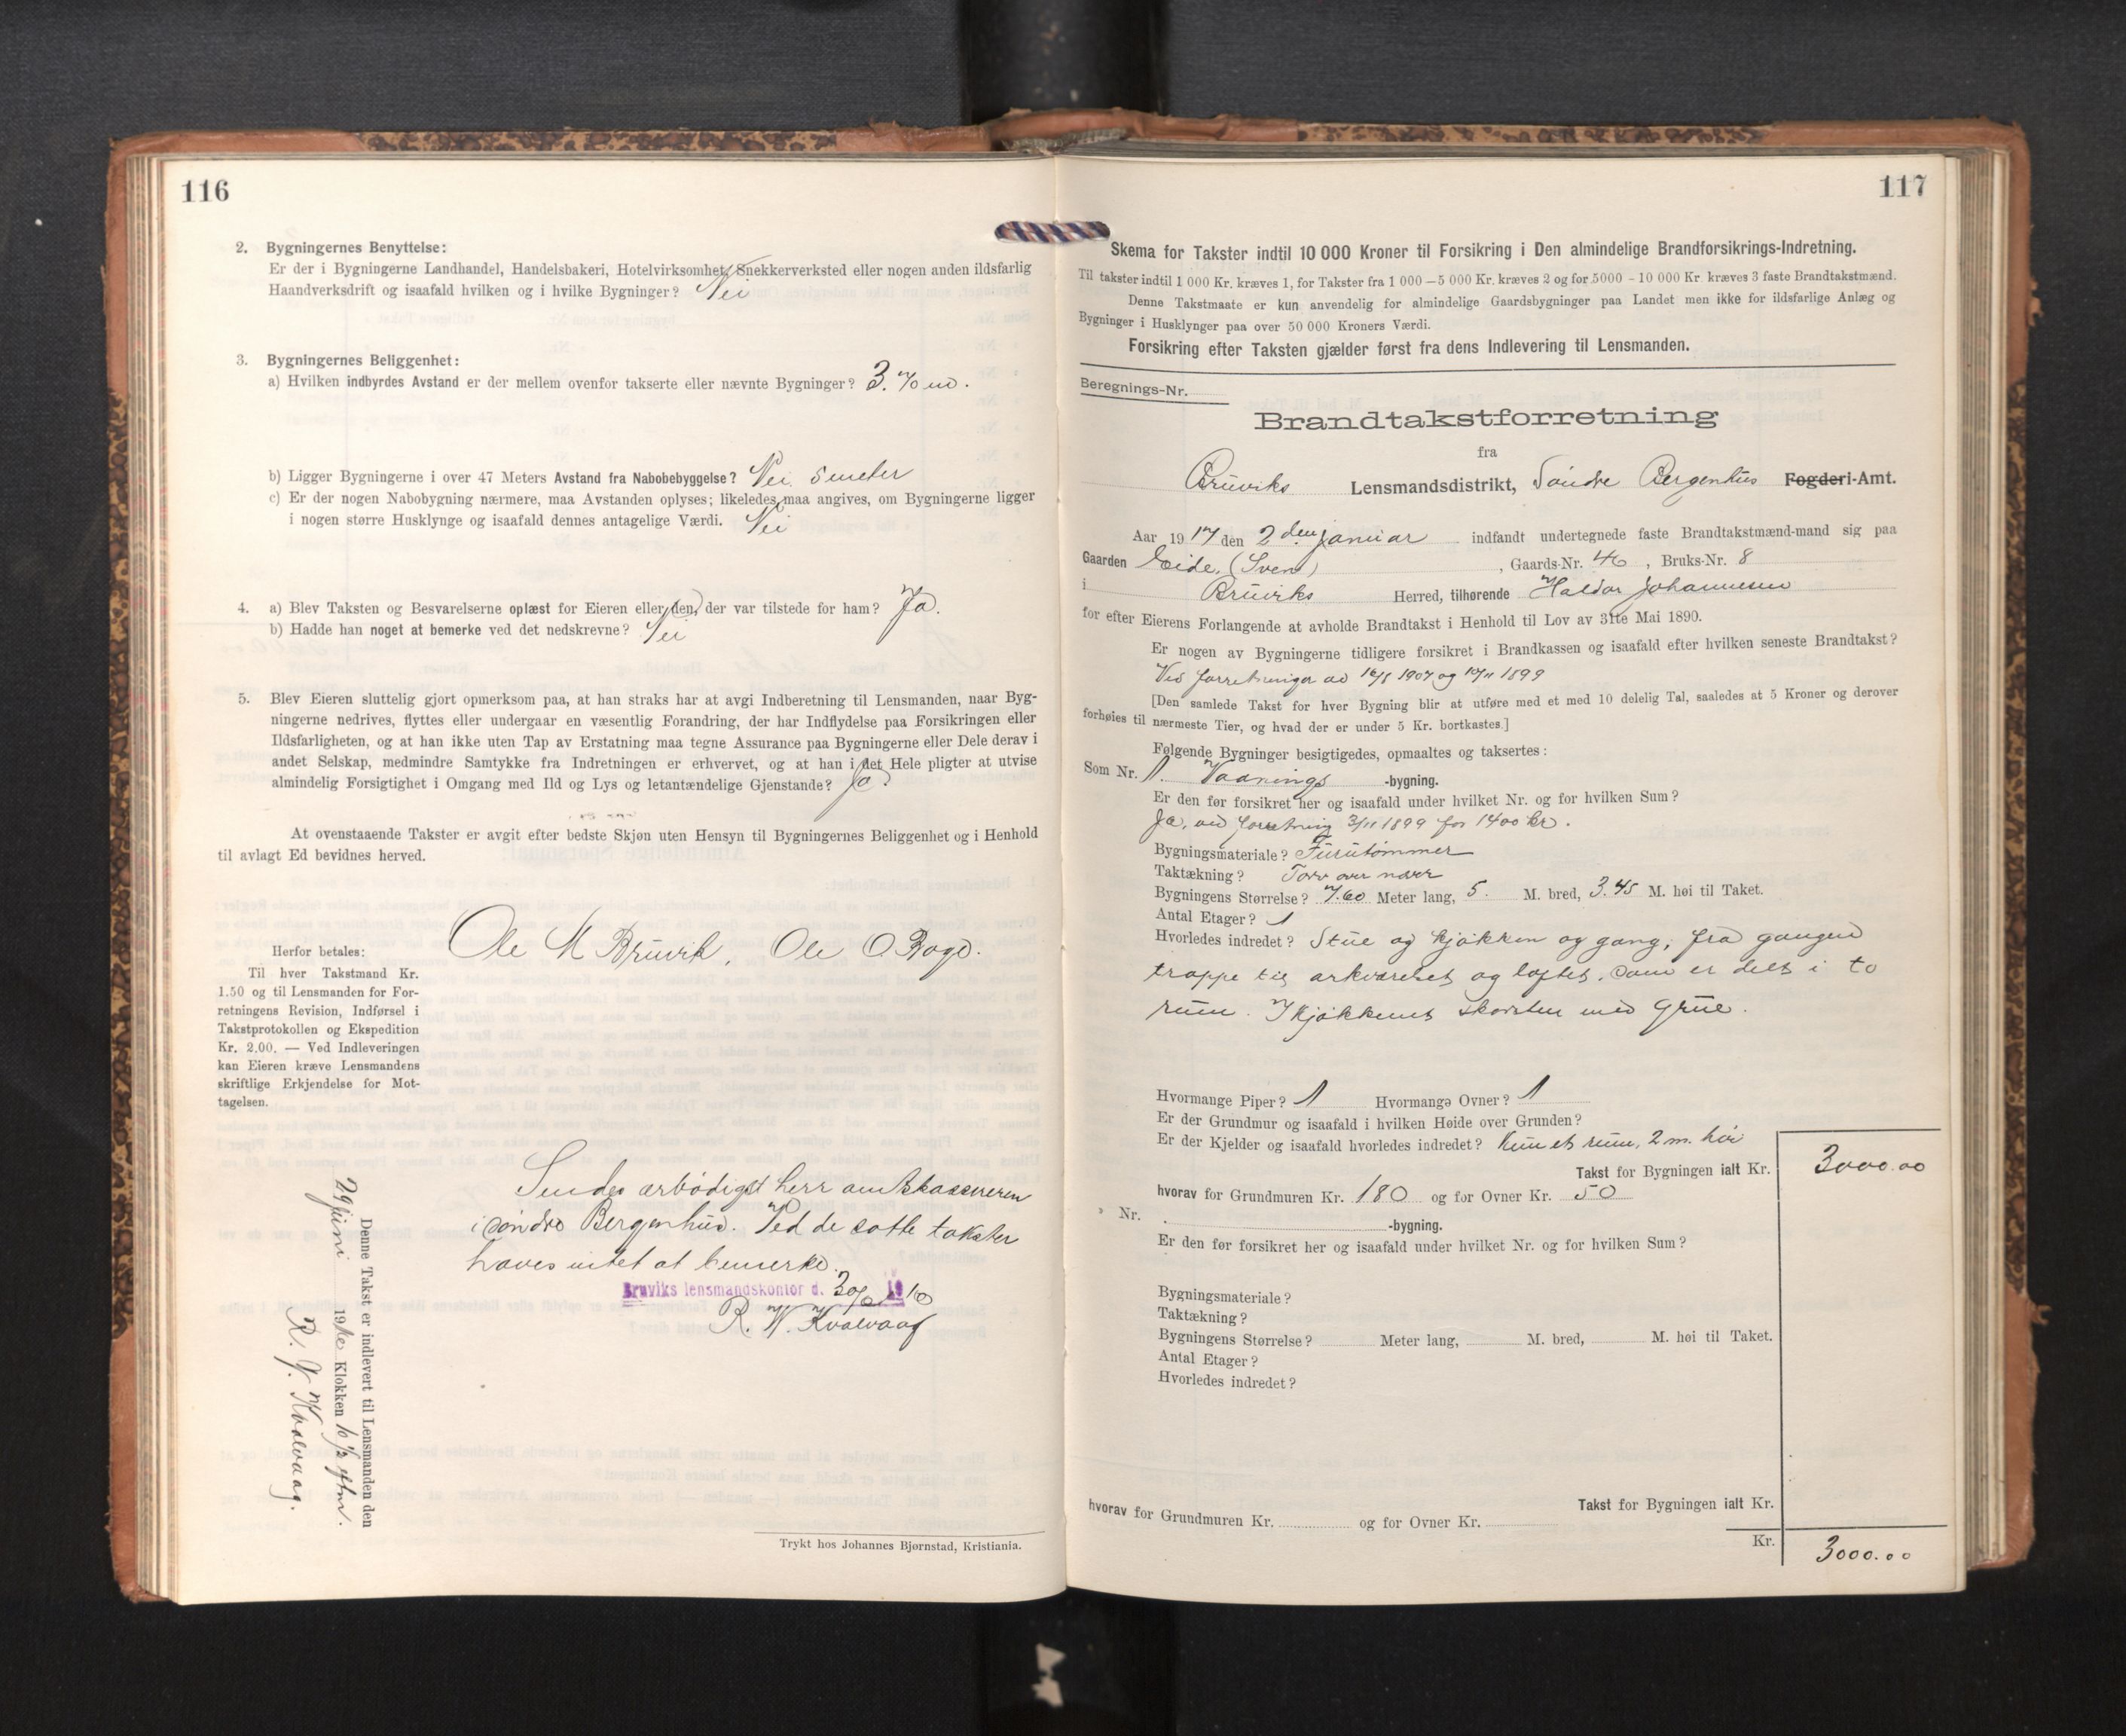 116
2. Bygningernes Benyttelse:
Er der i Bygningerne Landhandel, Handelsbakeri, Hotelvirksomhet, Snekkerverksted eller nogen anden ildsfarlig
Haandverksdrift og isaafald hvilken og i hvilke Bygninger? Nei
3. Bygningernes Beliggenhet:
a) Hvilken indbyrdes Avstand er der mellem ovenfor takserte eller nævnte Bygninger? 3.
b) Ligger Bygningerne i over 47 Meters Avstand fra Nabobebyggelse? Nei 5 meter
c) Er der nogen Nabobygning nærmere, maa Avstanden oplyses; likeledes maa angives, om Bygningerne ligger
i nogen større Husklynge og isaafald dennes antagelige Værdi. Nei
4. a) Blev Taksten og Besvarelserne oplæst for Eieren eller den, der var tilstede for ham? Ja.
b) Hadde han noget at bemerke ved det nedskrevne? Nei
5. Blev Eieren sluttelig gjort opmerksom paa, at han straks har at avgi Indberetning til Lensmanden, naar Byg-
ningerne nedrives, flyttes eller undergaar en væsentlig Forandring, der har Indflydelse paa Forsikringen eller
Ildsfarligheten, og at han ikke uten Tap av Erstatning maa tegne Assurance paa Bygningerne eller Dele derav i
andet Selskap, medmindre Samtykke fra Indretningen er erhvervet, og at han i det Hele pligter at utvise
almindelig Forsigtighet i Omgang med Ild og Lys og letantændelige Gjenstande? Ja.
At ovenstaaende Takster er avgit efter bedste Skjøn uten Hensyn til Bygningernes Beliggenhet og i Henhold
til avlagt Ed bevidnes herved.
Ole M Bruvik, Ole O
Herfor betales:
Til hver Takstmand Kr.
1.50 og til Lensmanden for For-
retningens Revision, Indførsel i
Takstprotokollen og Ekspedition
Kr. 2.00. — Ved Indleveringen
kan Eieren kræve Lensmandens
skriftlige Erkjendelse for Mot-
tagelsen.
Sendes ærbødigst herr amtskassereren
i søndre Bergenhus. Ved de satte takster
haves intet at bemerke.
Bruviks lensmandskontor d. 30/6 1910
R. W. Kvalvaag
Denne Takst er indlevert til Lensmanden den
29 juni 19 Klokken 10 1/2 eftm.
R. W. Kvalvaag.
Trykt hos Johannes Bjørnstad, Kristiania.
117
Skema for Takster indtil 10 000 Kroner til Forsikring i Den almindelige Brandforsikrings-Indretning.
Til takster indtil 1 000 Kr. kræves 1, for Takster fra 1 000 — 5 000 Kr. kræves 2 og for 5000 - 10 000 Kr. kræves 3 faste Brandtakstmænd.
Denne Takstmaate er kun anvendelig for almindelige Gaardsbygninger paa Landet men ikke for ildsfarlige Anlæg og
Bygninger i Husklynger paa over 50 000 Kroners Værdi.
Forsikring efter Taksten gjælder først fra dens Indlevering til Lensmanden.
Beregnings-Nr.
Brandtakstforretning
fra
Bruviks Lensmandsdistrikt, Søndre Bergenhus Fogderi-Amt.
Aar 1917 den 2den januar indfandt undertegnede faste Brandtakstmænd-mand sig paa
Gaarden Eide, (Sven), Gaards-Nr. 46, Bruks-Nr. 8
i Bruviks Herred, tilhørende Haldor Johannesen
for efter Eierens Forlangende at avholde Brandtakst i Henhold til Lov av 31te Mai 1890.
Er nogen av Bygningerne tidligere forsikret i Brandkassen og isaafald efter hvilken seneste Brandtakst?
Ved forretninger av 16/8 1907 og 1899
[Den samlede Takst for hver Bygning blir at utføre med et med 10 delelig Tal, saaledes at 5 Kroner og derover
forhøies til nærmeste Tier, og hvad der er under 5 Kr. bortkastes.]
Følgende Bygninger besigtigedes, opmaaltes og taksertes:
Som Nr. 1. Vaanings -bygning.
Er den før forsikret her og isaafald under hvilket Nr. og for hvilken Sum?
Ja, ved forretning 3/11 1899 for 1400 kr.
Bygningsmateriale? Furutømmer
Taktækning? Torv over næver
Bygningens Størrelse? 7.60 Meter lang, 5. M. bred, 3.45 M. høi til Taket.
Antal Etager? 1
Hvorledes indredet? Stue og kjøkken og gang, fra gangen
trappe til arkværelset og loftet, som er delt i to
rum. I kjøkkenet skorsten med grue.
Hvormange Piper? 1 Hvormange Ovner? 1
Er der Grundmur og isaafald i hvilken Høide over Grunden?
Er der Kjelder og isaafald hvorledes indredet? Kun et rum, 2 m. høi
Takst for Bygningen ialt Kr. 3000.00
hvorav for Grundmuren Kr. 180 og for Ovner Kr. 50
Nr. -bygning.
Er den før forsikret her og isaafald under hvilket Nr. og for hvilken Sum?
Bygningsmateriale?
Taktækning?
Bygningens Størrelse? Meter lang, M. bred, M. høi til Taket.
Antal Etager?
Hvorledes indredet?
Takst for Bygningen ialt Kr.
hvorav for Grundmuren Kr. og for Ovner Kr.
Kr. 3000.00